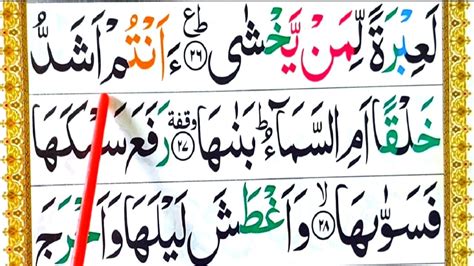 لَعِبْرَةً لِّمَنْ يَّخْشٰى ؕع ﴿۲۶﴾ ءَ اَنْتُمْ اَشَدُّ
خَلْقًا اَمِ السَّمَآءُ ؕ بَنٰىهَا وقفة ﴿۲۷﴾ رَفَعَ سَمْكَهَا
فَسَوّٰىهَا ۙ ﴿۲۸﴾ وَاَغْطَشَ لَيْلَهَا وَاَخْرَجَ